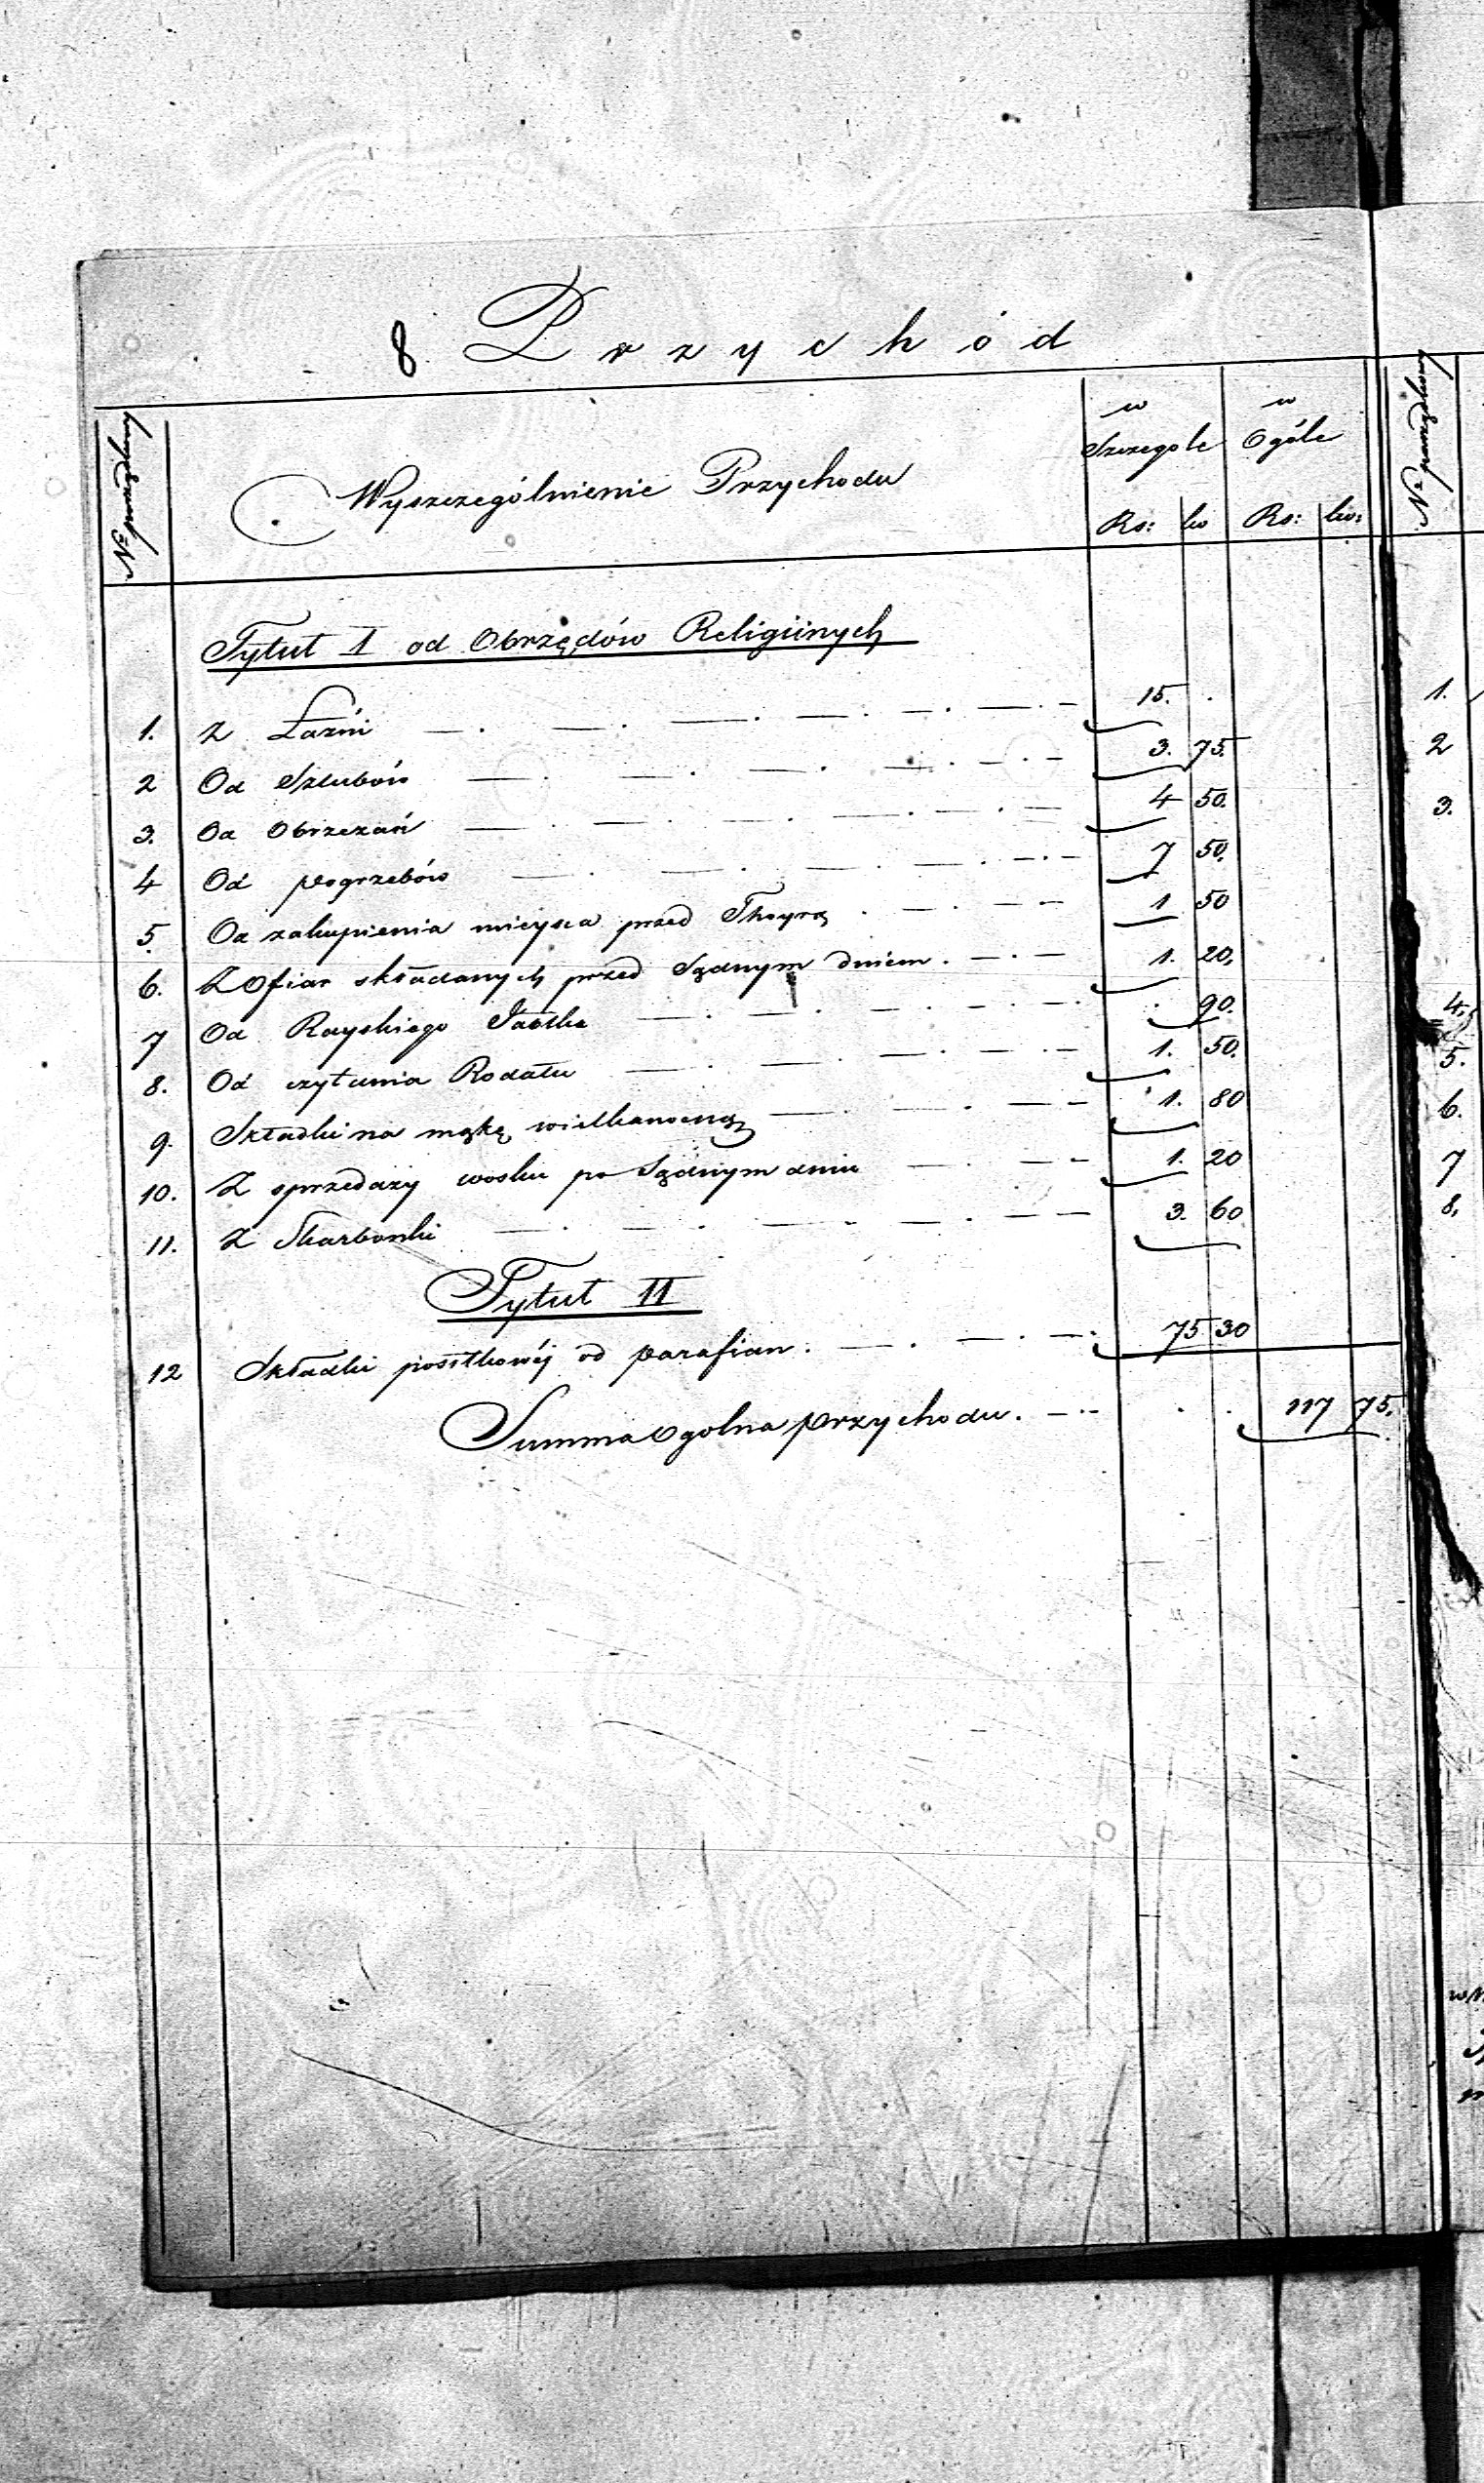 8. Przychód
w w
Szczegole Ogóle
Wyszczególnienie Przychodu
Rs: ko Rs: ko:
Tytuł I od Obrzędów Religiinych
1. Z Łaźni 15. .
2 Od Szlubów 3. 75.
3. Od Obrzezań 4 50.
4 Od pogrzebów 7 50.
5. Od zakupienia mieysca przed Thorą 1 50
6. Z Ofiar składanych przed Sądnym dniem. 1. 20.
7 Od Rayskiego Jabłka . 90.
8. Od czytania Rodału 1. 50.
9. Składki na mąkę wielkanocną 1. 80
10. Z sprzedaży wosku po Sądnym dniu 1. 20
11. Z Skarbonki 3. 60
Tytuł II
12 Składki posiłkowéj od parafian. 75 30
Summa ogolna przychodu. . . 117 75.
1.
2
3.
4.
5.
6.
7
8.